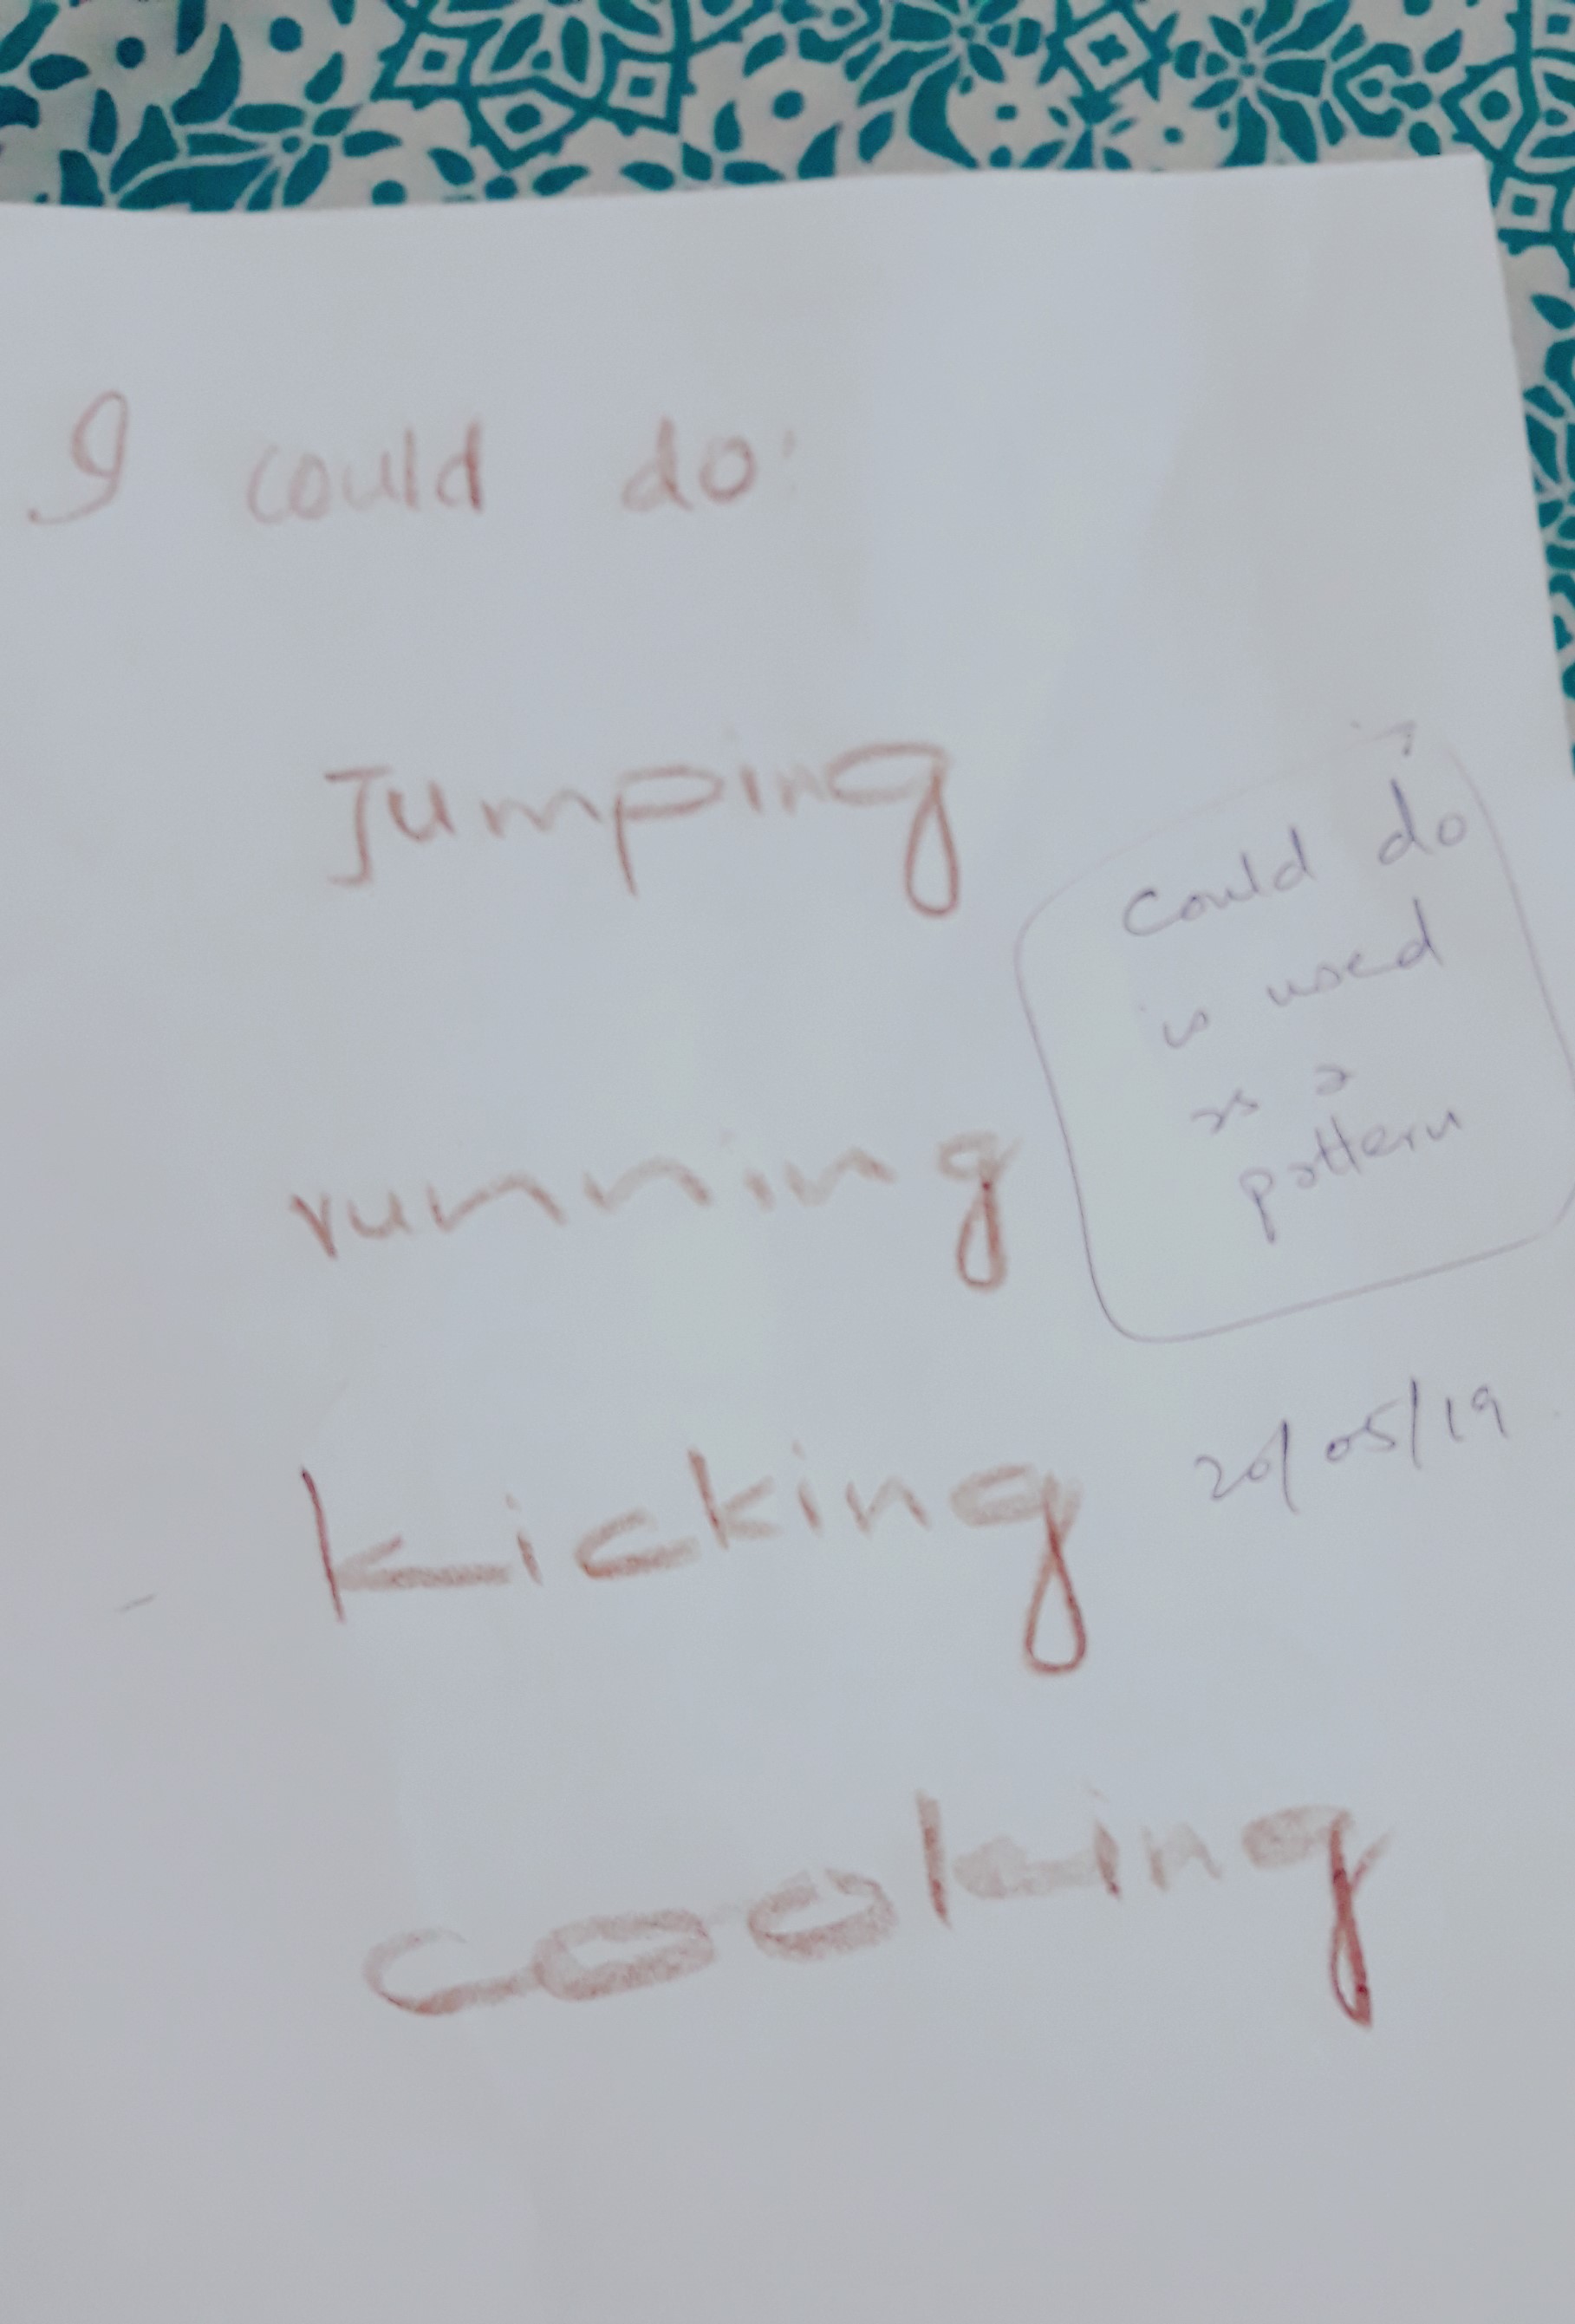 I could do:
Jumping
running
kicking
cooking
Could do
is used
as a
pattern
20/05/19